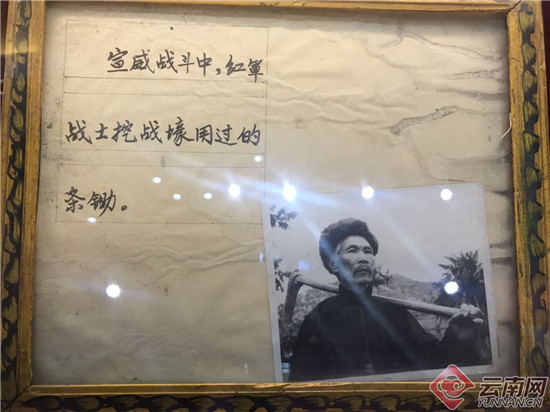 宣威战斗中，红軍
战士挖战壕用过的
条锄。
云南网
YUNNAN.CN